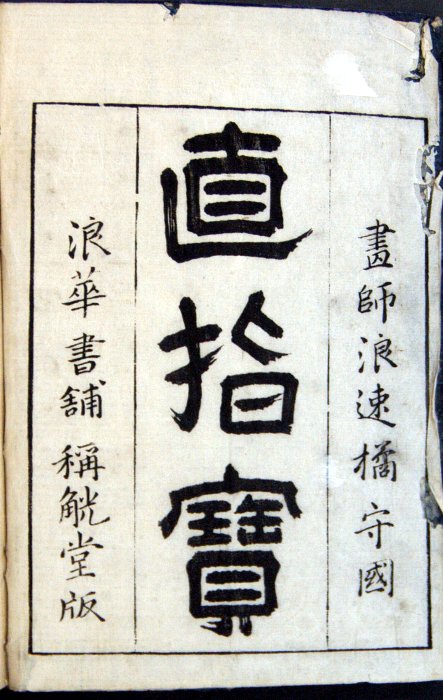 畫師浪速橘守國
直指寶
浪華書舖稱觥堂版